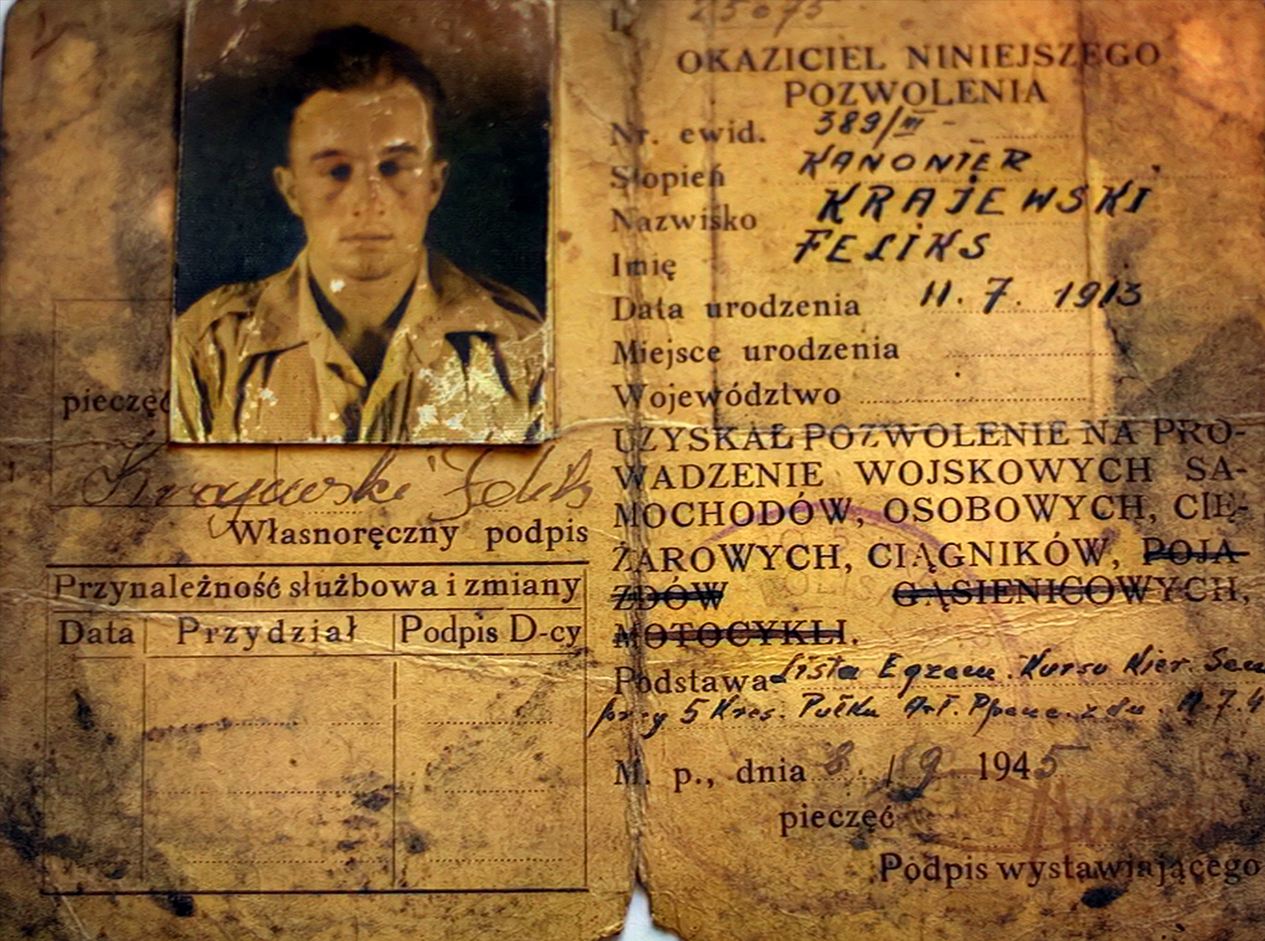 pieczęć
Krajewski Feliks
Własnoręczny podpis
Przynależność służbowa i zmiany
Data Przydział Podpis D-cy
25075
OKAZICIEL NINIEJSZEGO
POZWOLENIA
Nr. ewid. 389/III -
Stopień KANONIER
Nazwisko KRAJEWSKI
Imię FELIKS
Data urodzenia 11. 7. 1913
Miejsce urodzenia
Województwo
UZYSKAŁ POZWOLENIE NA PRO-
WADZENIE WOJSKOWYCH SA-
MOCHODÓW, OSOBOWYCH, CIĘ-
ŻAROWYCH, CIĄGNIKÓW, POJA
ZDÓW GĄSIENICOWYCH,
MOTOCYKLI.
Podstawa Lista Egzam. Kursu Kier. Sam
przy 5 Kres. Pułku Art. Ppanc. z dn. 11.7.4
M. p., dnia 8. 9 1945
pieczęć
Podpis wystawiającego